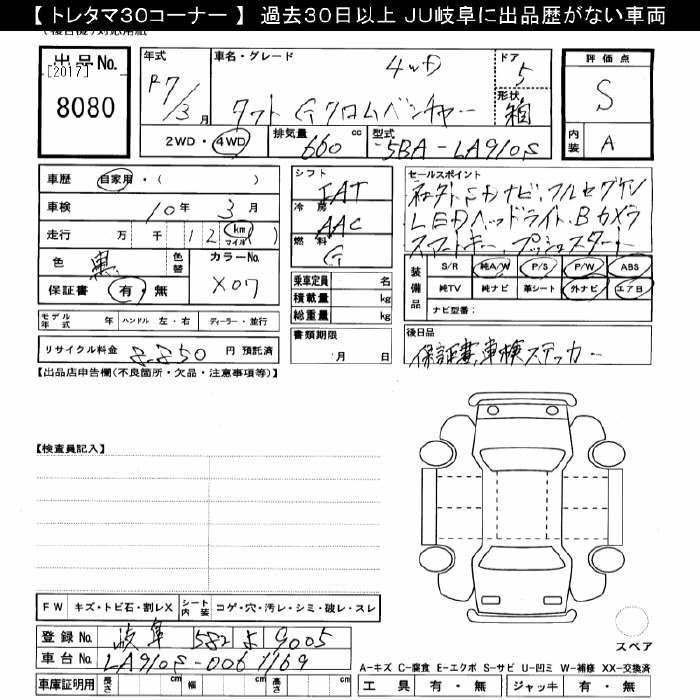 【トレタマ30コーナー】 過去30日以上 JU岐阜に出品歴がない車両
出品No.
[2017]
8080
年式
R7/3月
車名・グレード
4WD
タフト Gクロムベンチャー
ドア
5
形状
箱
評価点
S
内装
A
2WD・4WD
排気量
660 cc
型式
5BA-LA910S
車歴 自家用・( )
車検 10年 3月
走行 万 千 12 km マイル ( )
色 黒 色替
カラーNo.
X07
保証書 有・無
シフト
IAT
冷房
AAC
燃料
G
セールスポイント
社外SDナビ、フルセグTV
LEDヘッドライト、Bカメラ
スマートキー プッシュスタート
装備品
S/R 純A/W P/S P/W ABS
純TV 純ナビ 革シート 外ナビ エアB
ナビ型番:
乗車定員 名
積載量 kg
総重量 kg
モデル年式 年 ハンドル 左・右 ディーラー・並行
リサイクル料金 8,850 円 預託済
書類期限
月 日
後日品
保証書、車検ステッカー
【出品店申告欄(不良箇所・欠品・注意事項等)】
【検査員記入】
FW キズ・トビ石・割レX シート内装 コゲ・穴・汚レ・シミ・破レ・スレ
登録No. 岐阜 582 よ 9005
車台No. LA910S-0061169
車庫証明用 長さ cm 幅 cm 高さ cm
スペア
A-キズ C-腐食 E-エクボ S-サビ U-凹ミ W-補修 XX-交換済
工具 有・無 ジャッキ 有・無